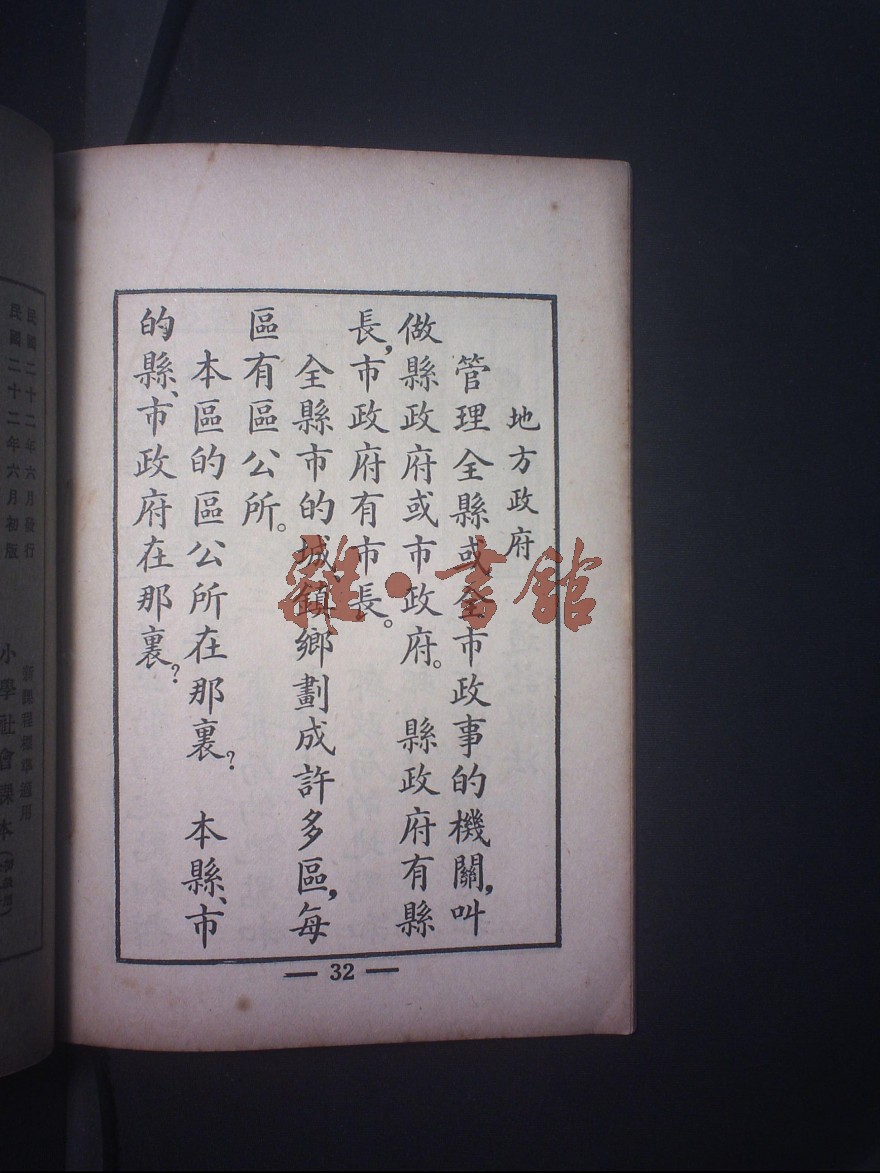 地方政府
管理全縣或全市政事的機關,叫
做縣政府或市政府。縣政府有縣
長,市政府有市長。
全縣市的城、鎮、鄉劃成許多區,每
區有區公所。
本區的區公所在那裏?本縣、市
的縣、市政府在那裏?
— 32 —
雜·書館
民國二十二年六月發行
民國二十二年六月初版
新課程標準適用
小學社會課本